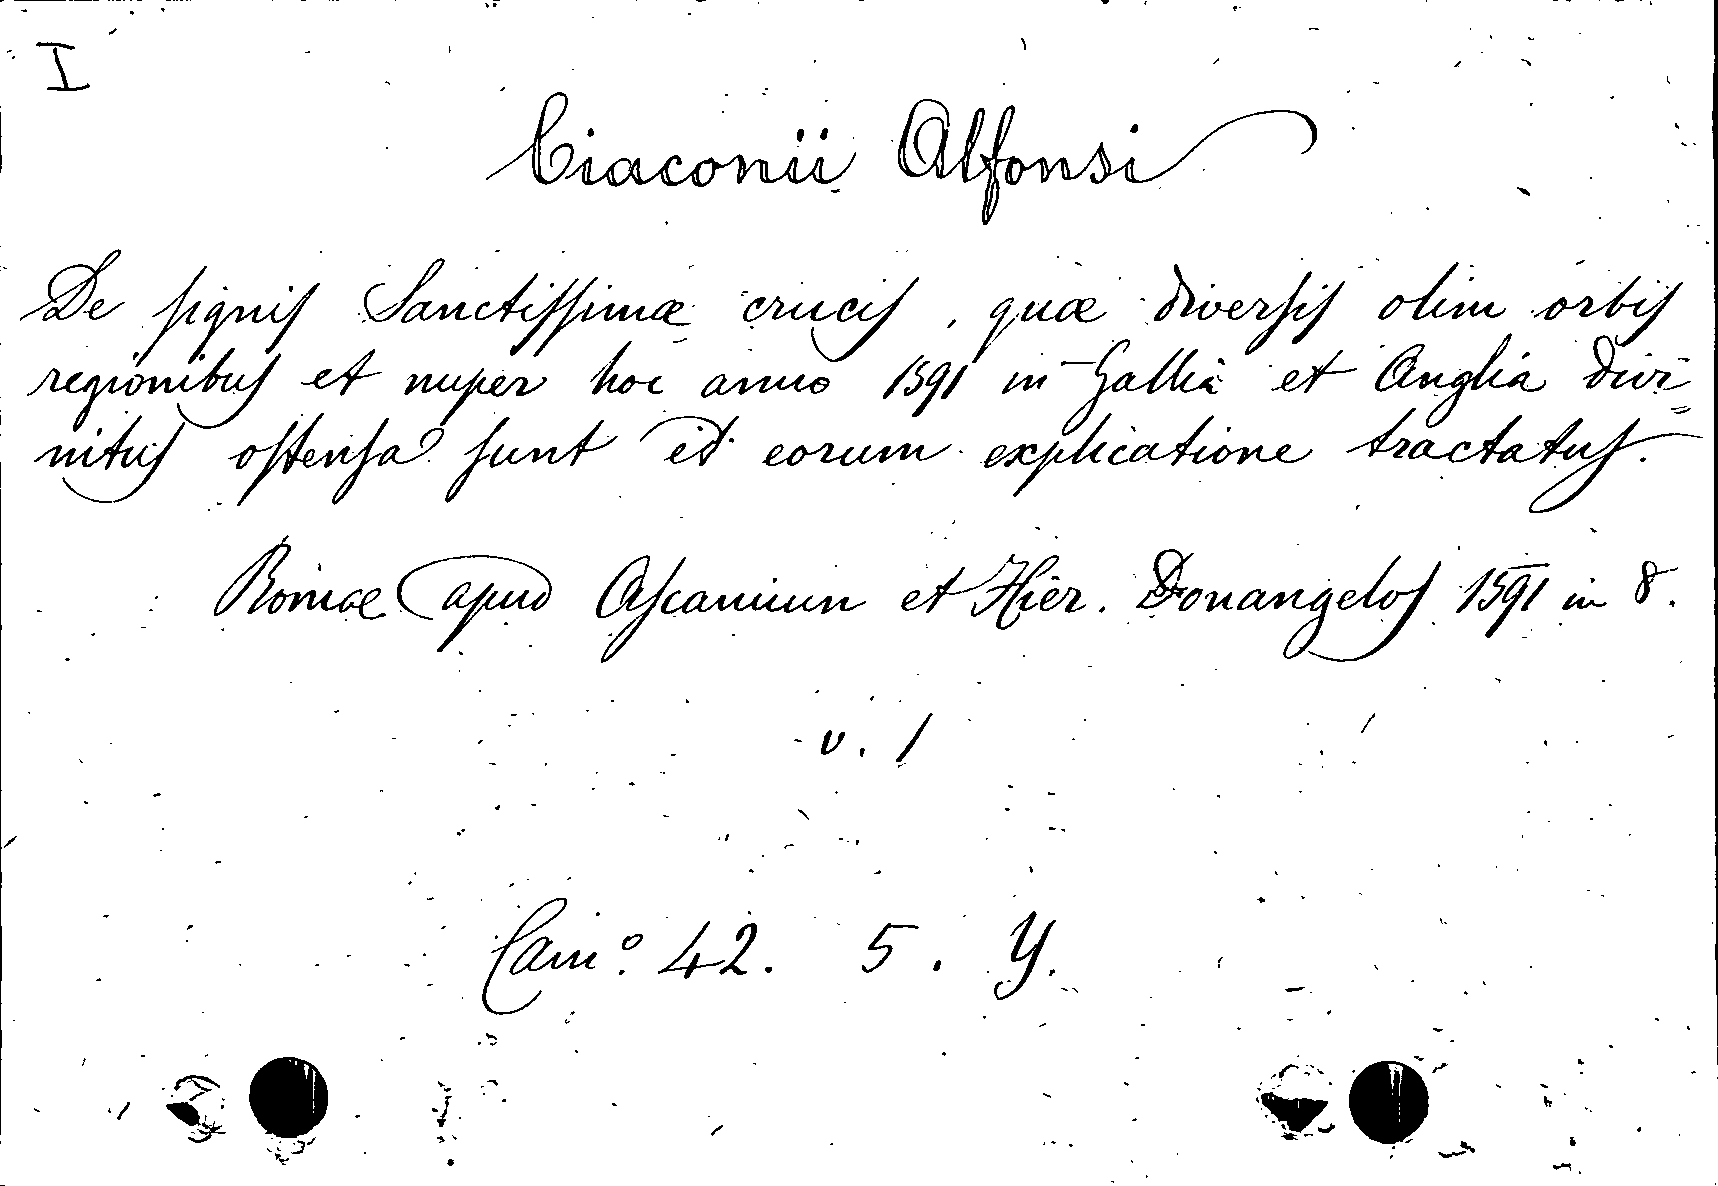 I
Ciaconii Alfonsi
De signis Sanctissimæ crucis, quæ diversis olim orbis
regionibus et nuper hoc anno 1591 in Gallia et Anglia divi=
nitus ostensa sunt et eorum explicatione tractatus.
Romae apud Ascanium et Hier. Donangelos 1591 in 8.
v. 1
Camº. 42. 5. Y.